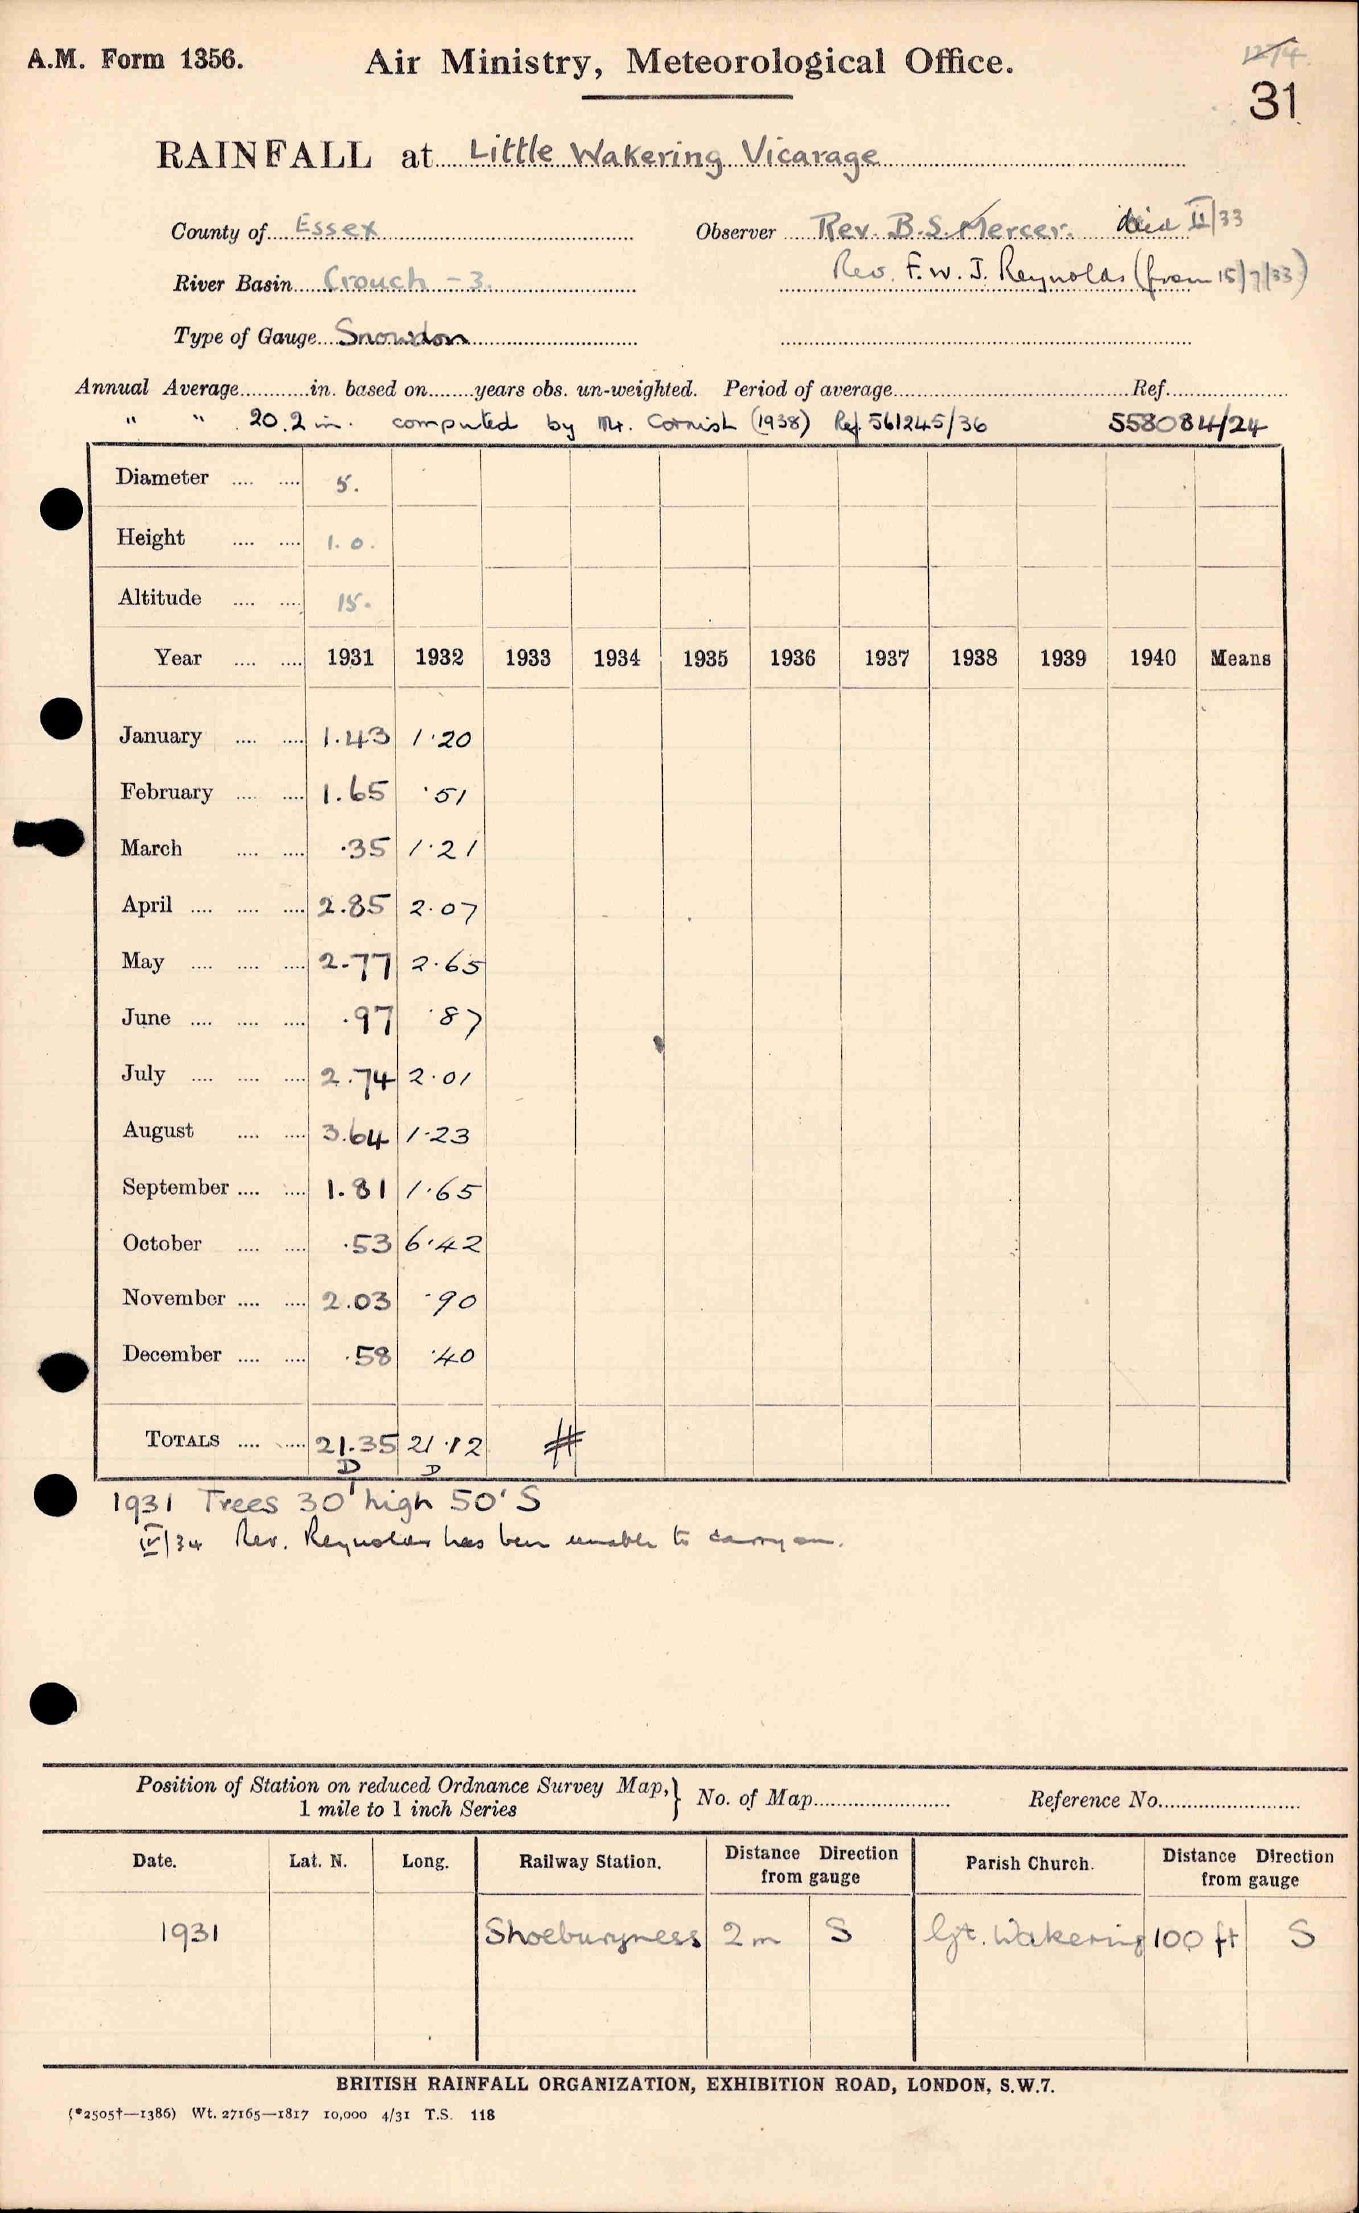 A.M. Form 1356.
Air Ministry, Meteorological Office.
12/4.
31
RAINFALL at Little Wakering Vicarage
County of Essex
Observer Rev. B.S. Mercer. died II/33
River Basin Crouch - 3.
Rev. F. W. J. Reynolds (from 15/7/33)
Type of Gauge Snowdon
Annual Average............in. based on........years obs. un-weighted. Period of average........................Ref....................
" " 20.2 in. computed by Mr. Cornish (1938) Ref. 561245/36 558084/24
Diameter .... .... 5.
Height .... .... 1.0.
Altitude .... .... 15.
Year .... .... 1931 1932 1933 1934 1935 1936 1937 1938 1939 1940 Means
January .... .... 1.43 1.20
February .... .... 1.65 .51
March .... .... .35 1.21
April .... .... .... 2.85 2.07
May .... .... .... 2.77 2.65
June .... .... .... .97 .87
July .... .... .... 2.74 2.01
August .... .... 3.64 1.23
September .... .... 1.81 1.65
October .... .... .53 6.42
November .... .... 2.03 .90
December .... .... .58 .40
TOTALS .... .... 21.35 21.12 #
D D
1931 Trees 30' high 50' S
IV/34 Rev. Reynolds has been unable to carry on.
Position of Station on reduced Ordnance Survey Map,} No. of Map........................ Reference No.........................
1 mile to 1 inch Series
Date. Lat. N. Long. Railway Station. Distance Direction from gauge Parish Church. Distance Direction from gauge
1931 Shoeburyness 2 m S Gt. Wakering 100 ft S
BRITISH RAINFALL ORGANIZATION, EXHIBITION ROAD, LONDON, S.W.7.
(*2505†—1386) Wt. 27165—1817 10,000 4/31 T.S. 118